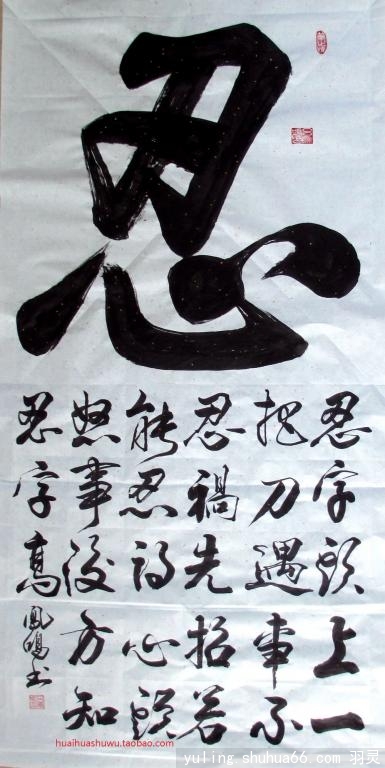 忍
忍字頭上一
把刀遇事不
忍禍先招若
能忍得心頭
怒事後方知
忍字高
鳳鳴书
huaihuashuwu.taobao.com
yuling.shuhua66.com 羽灵